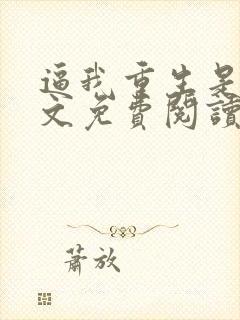 逼我重生是
文免費閱讀
蕭放